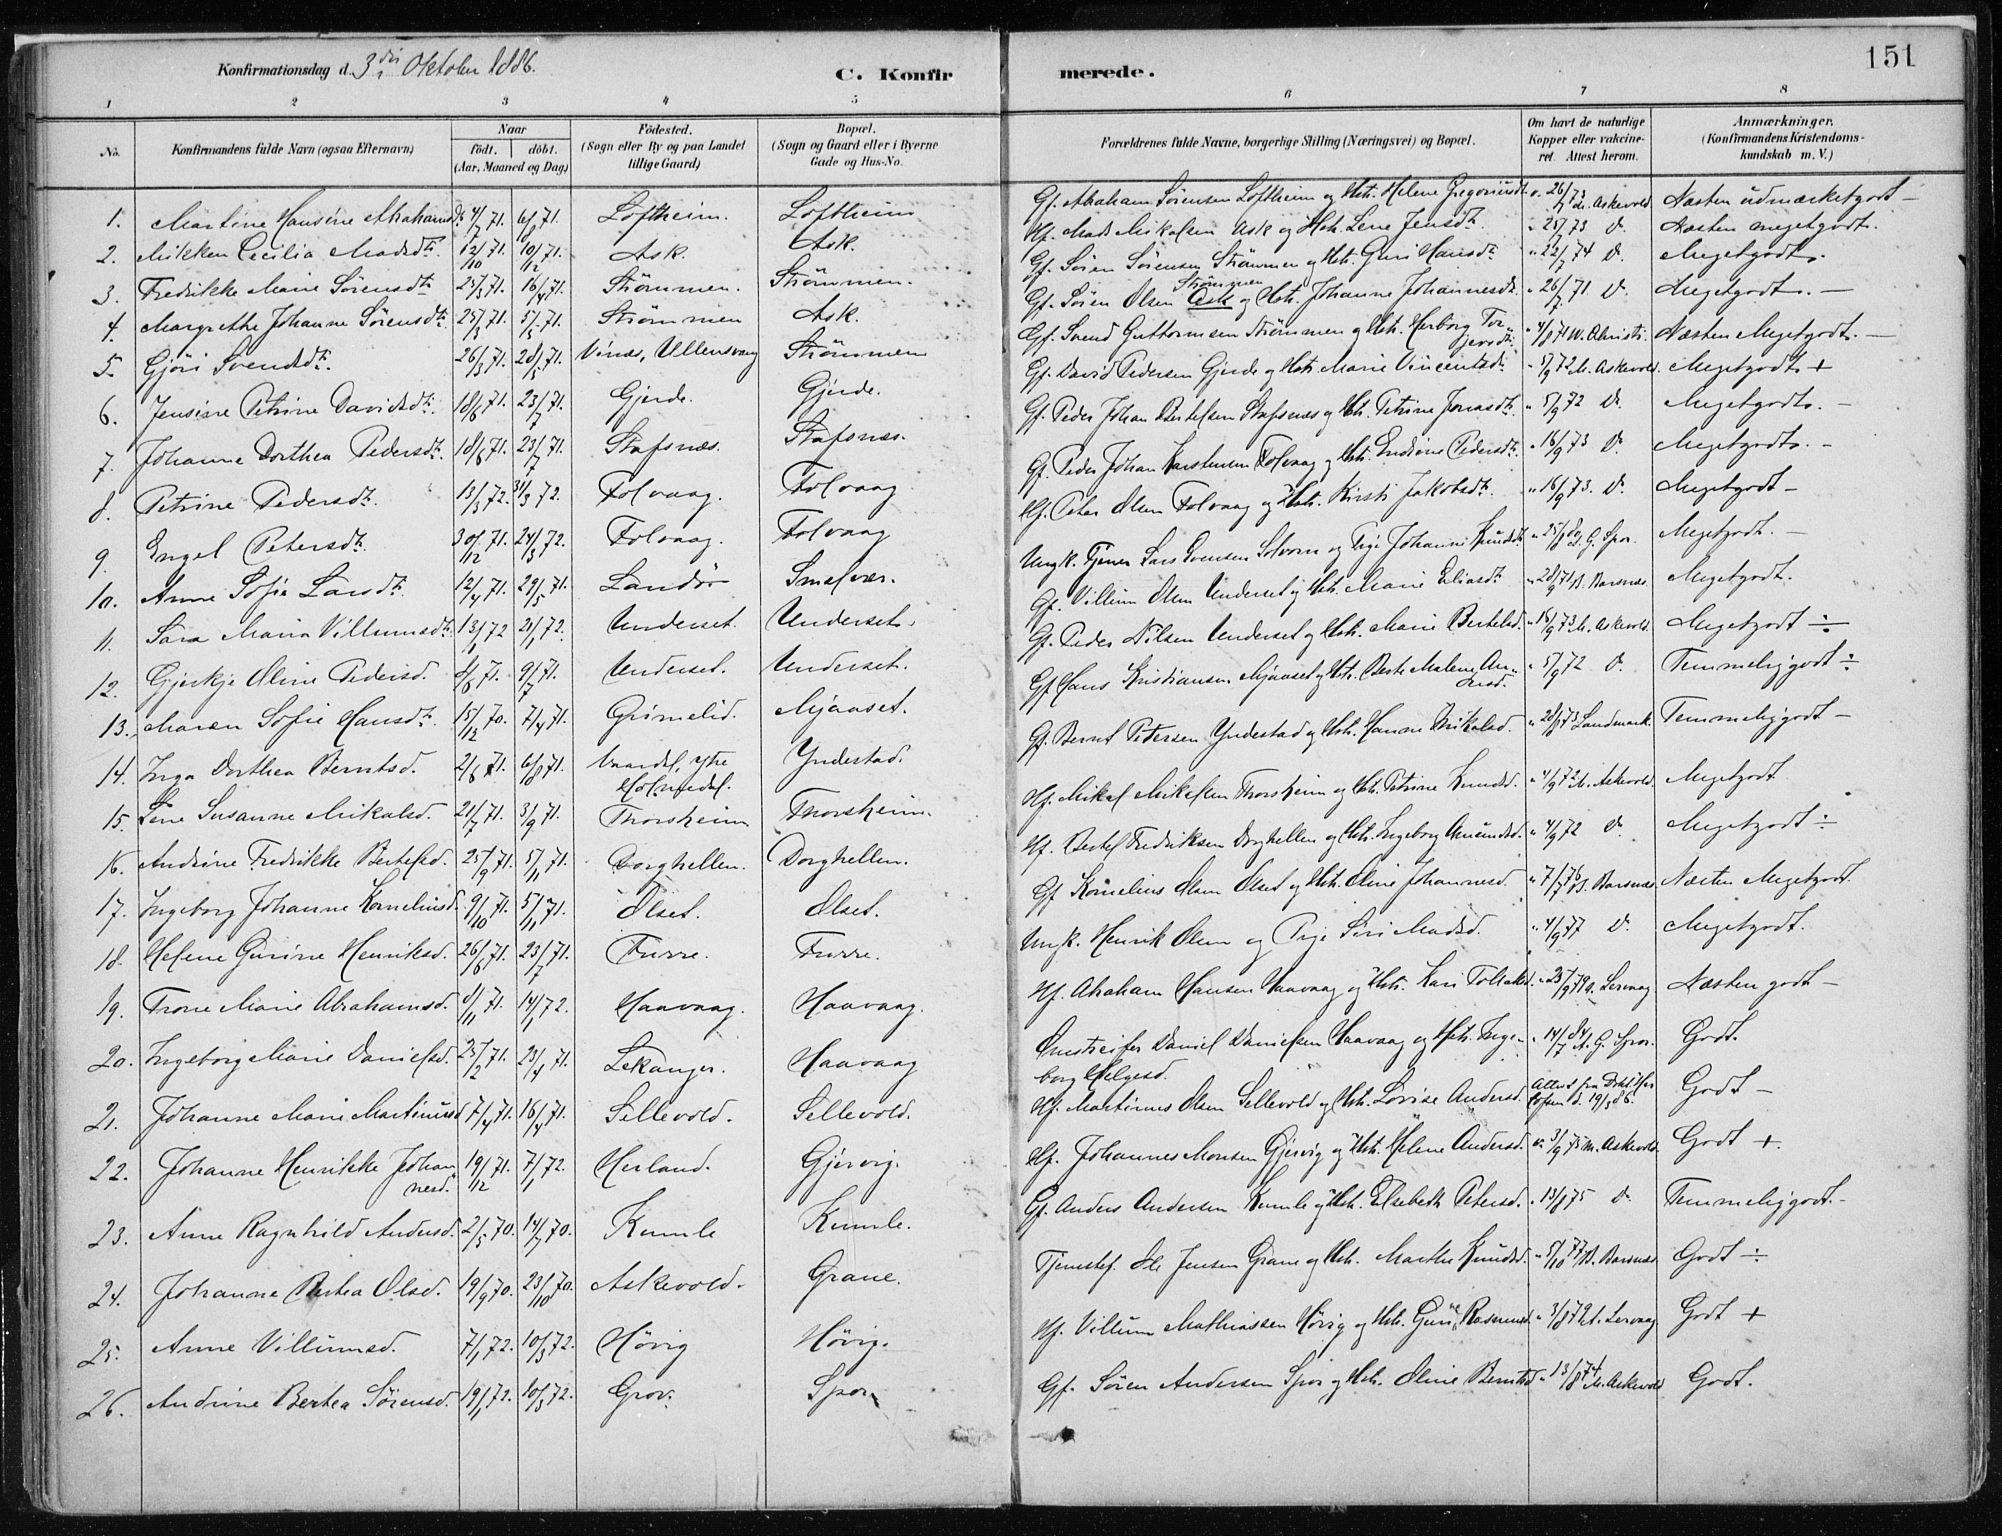 151
Konfirmationsdag d. 3die Oktober 1886.
C. Konfirmerede.
1 2 3 4 5 6 7 8
No. | Konfirmandens fulde Navn (ogsaa Efternavn) | Naar födt. döbt. (Aar, Maaned og Dag) | Födested. (Sogn eller By og paa Landet tillige Gaard) | Bopæl. (Sogn og Gaard eller i Byerne Gade og Hus-No. | Forældrenes fulde Navne, borgerlige Stilling (Næringsvei) og Bopæl. | Om havt de naturlige Kopper eller vakcineret. Attest herom. | Anmærkninger. (Konfirmandens Kristendomskundskab m. V.)
1. Martine Hansine Abrahamsdr. 4/7 71. 6/8 71. Löftheim. Löftheim Gf. Abraham Sörensen Löftheim og Hst. Helene Gregoriusdr. v. 26/7 73 M. Askevold Næsten udmærketgodt —
2. Mikken Cecilia Madsdtr. 12/10 71. 10/12 71. Ask. Ask. Hf. Mads Mikalsen Ask og Hst. Lene Jensdtr. " 25/7 73 D. Næsten megetgodt.
3. Fredrikke Marie Sörensdtr. 25/3 71. 16/4 71. Strömmen. Strömmen. Gf. Sören Sörensen Strömmen og Hst. Guri Hansdtr. " 22/7 74 D. Megetgodt.
4. Margrethe Johanne Sörensdtr. 25/3 71. 5/5 71. Strömmen Ask. Gf. Sören Olsen Ask Strömmen og Hst. Johanne Johannesdr. " 26/7 71 D. Megetgodt. —
5. Gjöri Svendsdtr. 26/3 71. 28/5 71. Vinæs, Ullensvang Strömmen Gf. Svend Guttormsen Strömmen og Hst. Herborg Torjersdtr. " 4/8 71 W. Christi. Næsten Megetgodt. —
6. Jensine Petrine Davidsdtr. 18/6 71. 23/7 71. Gjerde. Gjerde. Gf. David Pedersen Gjerde og Hst. Marie Vincentsdr. " 5/9 72 M. Askevold. Megetgodt +
7. Johanne Dorthea Pedersdtr. 18/6 71. 23/7 71. Stafsnæs. Stafsnæs. Gf. Peder Johan Bertelsen Stafsnæs og Hst. Petrine Jonasdtr. " 5/9 72 D. Megetgodt. —
8. Petrine Pedersdtr. 13/3 72. 31/3 72. Folvaag. Folvaag Gf. Peder Johan Karstensen Folvaag og Hst. Endine Pedersdtr. " 16/9 73 D. Megetgodt. —
9. Engel Petersdtr. 30/12 71. 24/3 72. Folvaag. Folvaag Hf. Peter Olsen Folvaag og Hst. Kirsti Jakobsdtr. " 16/9 73. D. Megetgodt —
10. Anne Sofie Larsdtr. 12/4 71. 29/5 71. Landör Smelvær. Ungk. Tjener Lars Evensen Solvorn og Pige Johanne Knudsdtr. " 25/8 82 G. Spor. Megetgodt. —
11. Sara Maria Villumsdtr. 13/1 72 21/1 72. Underset. Underset. Gf. Villum Olsen Underset og Hst. Marie Eliasdtr. " 28/9 71 B. Barsnæs. Megetgodt.
12. Gjertje Oline Pedersd. 8/6 71. 9/7 71. Underset. Underset. Gf. Peder Nilsen Underset og Hst. Marie Bertelsd. " 16/9 73 M. Askevold. Megetgodt ÷
13. Maren Sofie Hansdtr. 15/12 70. 7/4 71. Grimelid. Mjaaset. Gf. Hans Kristiansen Mjaaset og Hst. Berte Malene Andersd. " 5/9 72 D. Temmeliggodt ÷
14. Inga Dorthea Berntsd. 2/6 71. 6/8 71. Vaardal, ytre Holmedal. Yndestad. Gf. Bernt Petersen Yndestad og Hst. Hanne Mikalsd. " 28/8 73 Landmark. Temmeliggodt —
15. Lene Susanne Mikalsd. 21/7 71. 3/9 71. Thorsheim Thorsheim. Hf. Mikal Mikalsen Thorsheim og Hst. Petrine Knudsd. " 4/9 72 M. Askevold. Megetgodt
16. Andrine Fredrikke Bertelsd. 25/9 71. 5/11 71. Dorghellen. Dorghellen. Hf. Bertel Fredriksen Dorghellen og Hst. Ingeborg Amundsd. " 4/9 72 D. Megetgodt ÷
17. Ingeborg Johanne Korneliusd. 9/10 71. 5/11 71. Ölset. Ölset. Gf. Kornelius Olsen Ölset og Hst. Oline Johannesd. " 7/7 76 B. Barsnæs. Næsten Megetgodt
18. Helene Gurine Henriksd. 26/6 71. 23/7 71. Furre. Furre. Ungk. Henrik Olsen og Pige Siri Madsd. " 4/9 77 D. Megetgodt.
19. Trone Marie Abrahamsd. 8/11 71. 14/1 72. Haavaag. Haavaag. Hf. Abraham Hansen Haavaag og Hst. Kari Tollaksd. " 25/9 79 A. Lervaag Næsten godt —
20. Ingeborg Marie Danielsd. 25/2 71. 23/4 71. Lekanger. Haavaag Omstreifer Daniel Danielsen Haavaag og Hst. Ingeborg Helgesd. " 14/7 84 A. G. Spor. Godt.
21. Johanne Marie Martinusd 7/4 71. 16/4 71. Sellevold. Sellevold. Hf. Martinus Olsen Sellevold og Hst. Lovise Andersd. Attest fra Dokt. 19/3 86. Godt —
22. Johanne Henrikke Johannesd. 19/12 71. 7/1 72. Herland. Gjervig. Hf. Johannes Monsen Gjervig og Hst. Helene Andersd. " 3/9 75 M. Askevold. Godt +
23. Anne Ragnhild Andersd. 2/5 70. 14/7 70. Kumle Kumle. Gf. Anders Andersen Kumle og Hst. Elsebeth Petersd. " 13/8 75 D. Temmeliggodt. —
24. Johanne Bertea Olsd. 19/9 70. 23/10 70. Askevold. Grane. Tjenestef. Ole Jensen Grane og Hst. Marthe Knudsd. " 5/10 77 B. Barsnæs Godt ÷
25. Anne Villumsd. 7/1 72. 10/3 72. Hövig Hövig. Hf. Villum Mathiassen Hövig og Hst. Gurine Rasmusd. " 3/8 79 A. Lervaag Godt +
26. Andrine Bertea Sörensd. 19/1 72. 10/3 72. Grov. Spor Gf. Sören Andersen Spor og Hst. Oline Berntsd " 13/8 74 M. Askevold Godt.